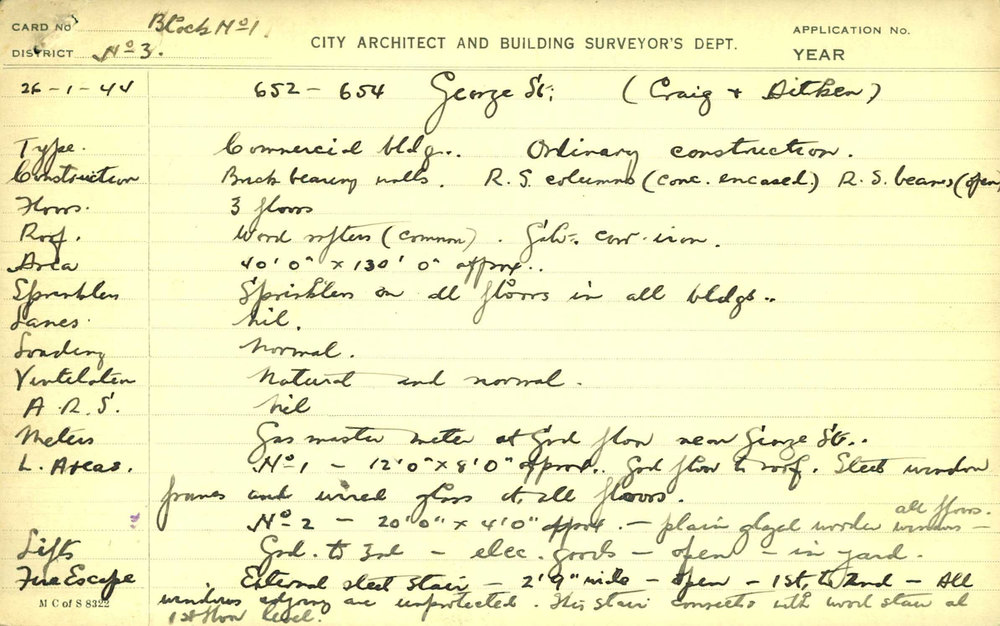 CARD No Block No 1.
DISTRICT No 3.
CITY ARCHITECT AND BUILDING SURVEYOR'S DEPT.
APPLICATION No.
YEAR
26-1-44 652 - 654 George St; (Craig + Aitken)
Type. Commercial bldg.. Ordinary construction.
Construction Brick bearing walls. R.S. columns (conc. encased.) R.S. beams (open)
Floors. 3 floors
Roof. Wood rafters (common). Galv. corr. iron.
Area 40'0" x 130'0" approx..
Sprinklers Sprinklers on all floors in all bldgs..
Lanes. Nil.
Loading Normal.
Ventilation Natural and normal.
A.R.S. Nil
Meters Gas master meter at Grd floor near George St..
L. Areas. No 1 - 12'0" x 8'0" approx.. Grd floor to roof. Steel window
frames and wired glass at all floors.
No 2 - 20'0" x 4'0" approx. - plain glazed wooden windows - all floors.
Lifts Grd. to 3rd - elec. goods - open - in yard.
Fire Escape . External steel stair - 2'9" wide - open - 1st, to 2nd - All
windows adjoing are unprotected. This stair connects with wood stair at
1st floor level.
M C of S 8322